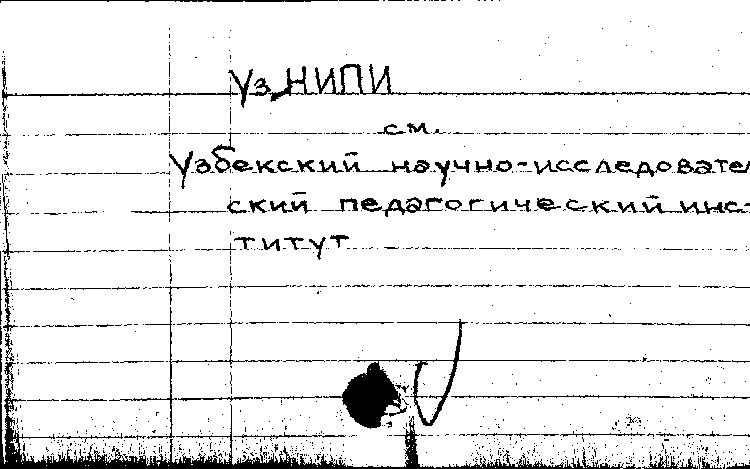 УзНИПИ
см.
Узбекский научно-исследовате
ский педагогический инс-
титут